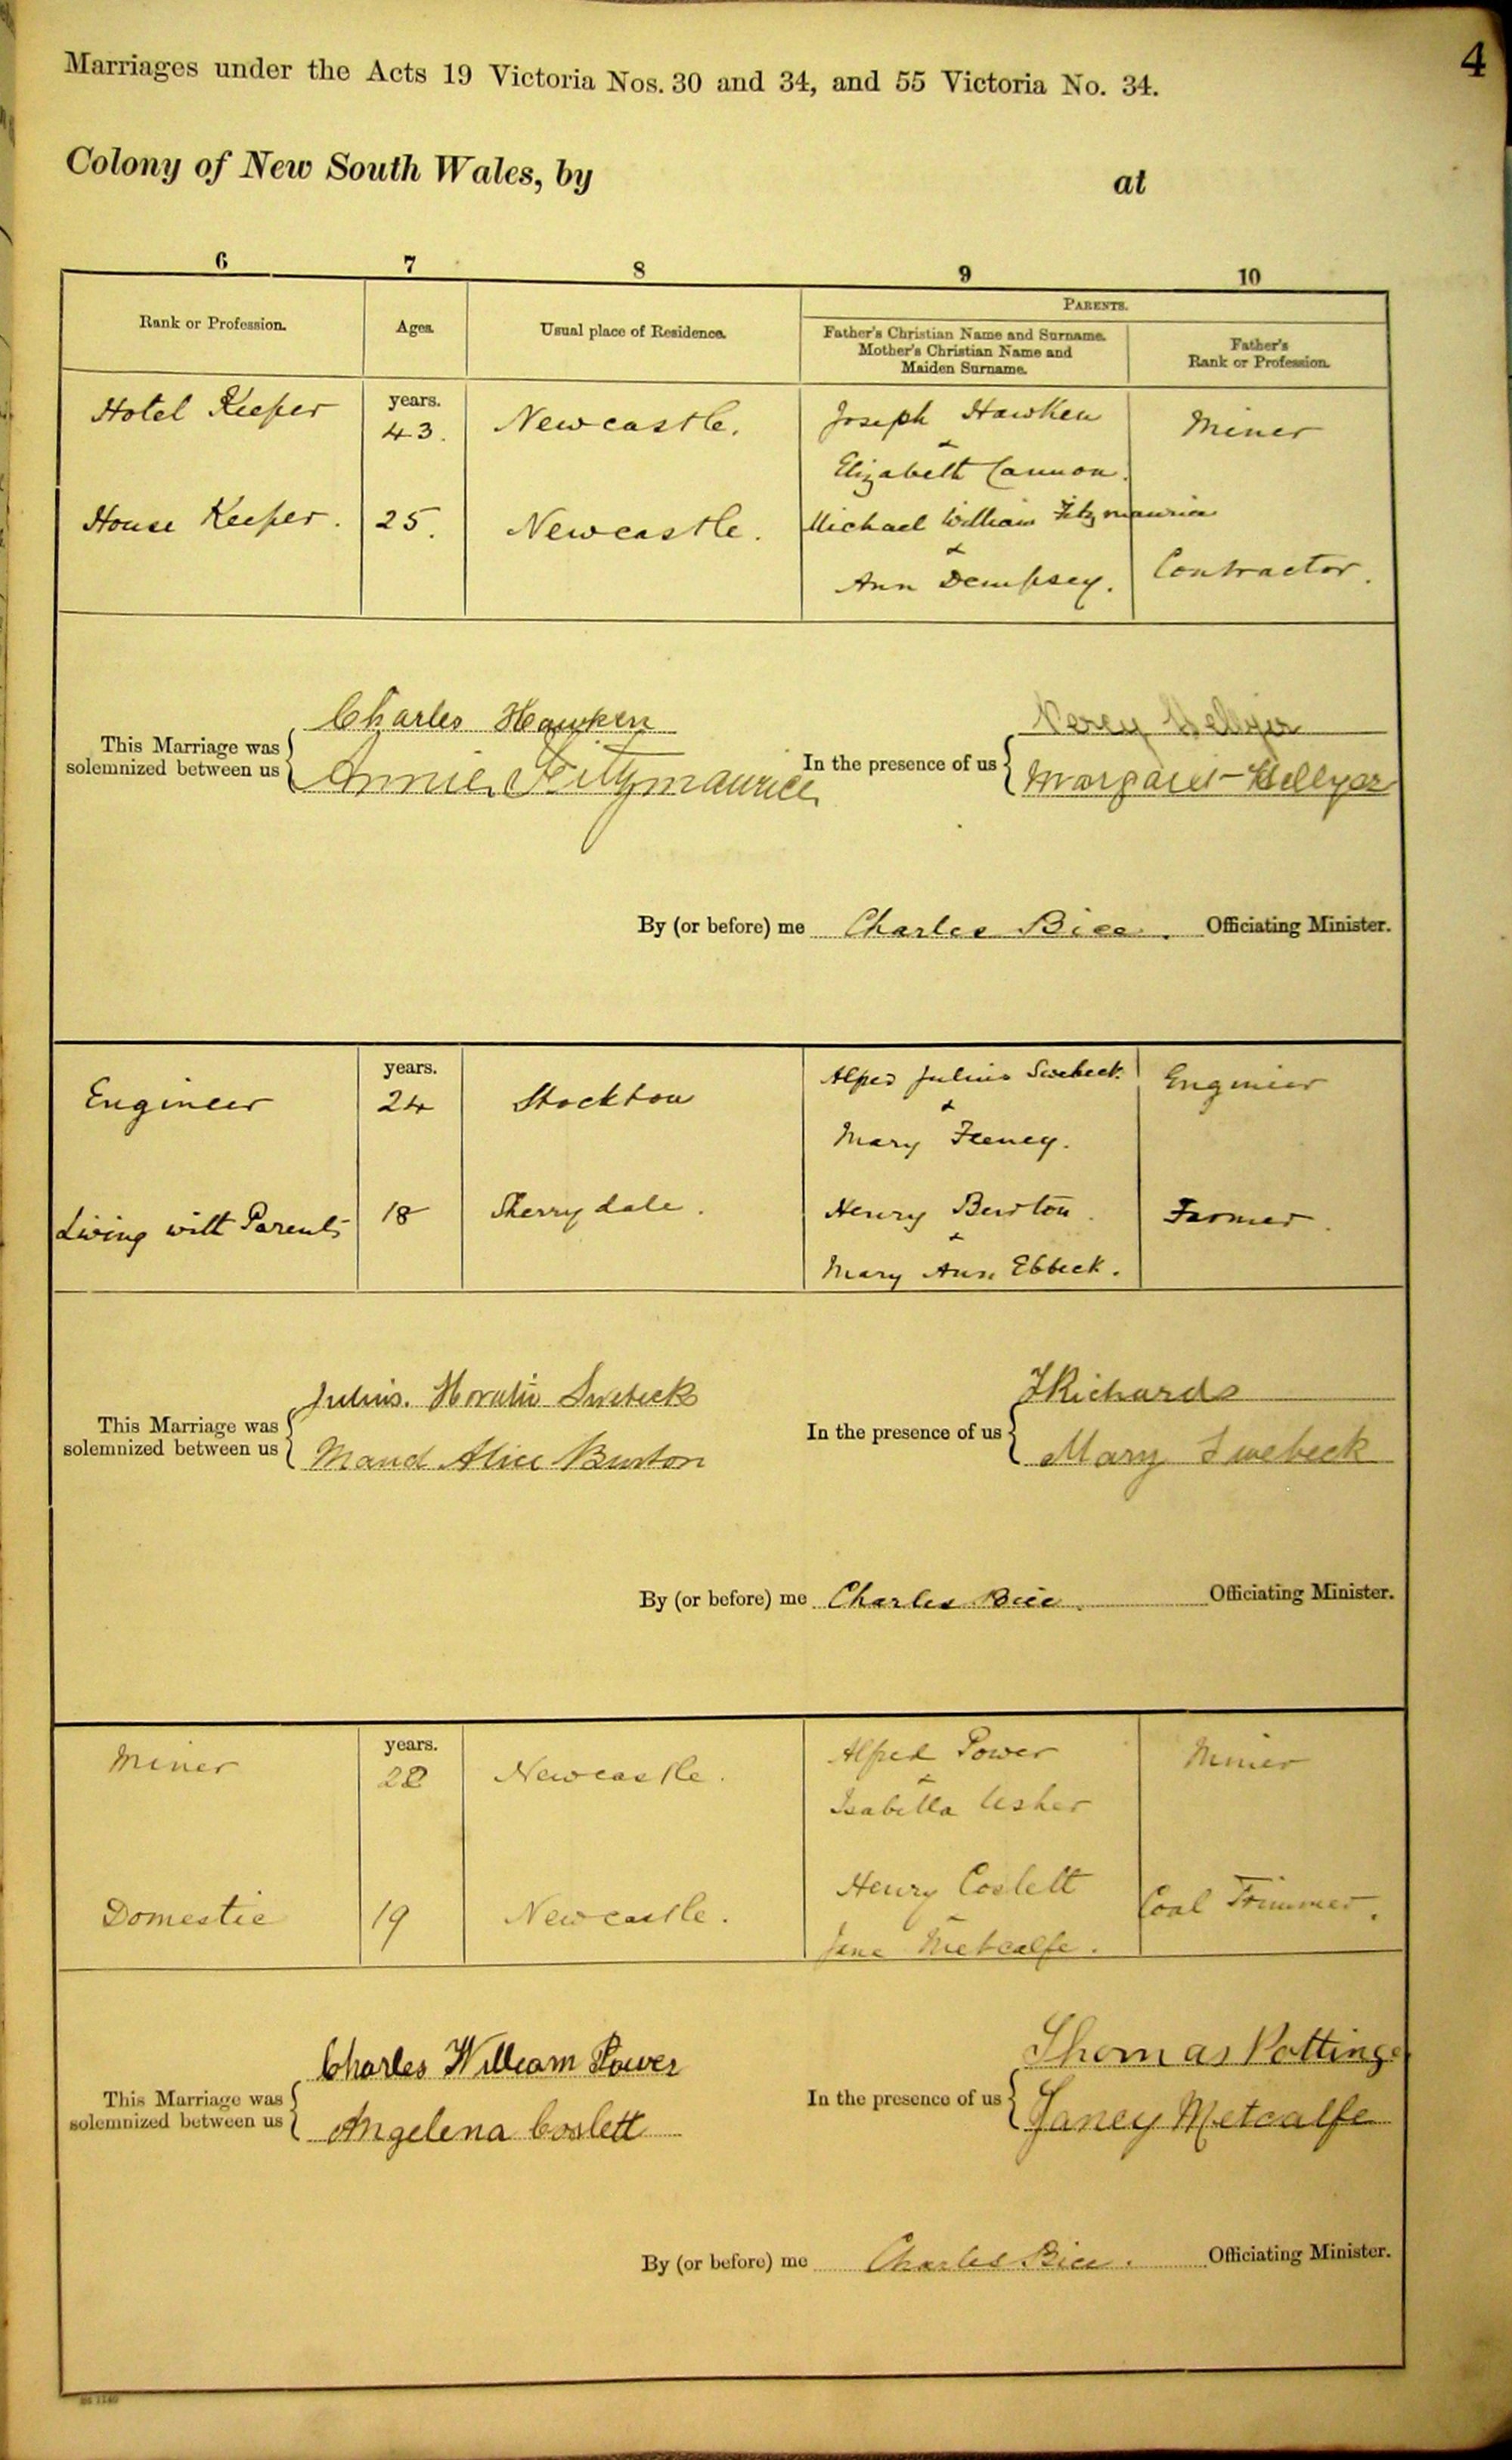 4
Marriages under the Acts 19 Victoria Nos. 30 and 34, and 55 Victoria No. 34.
Colony of New South Wales, by at
6 7 8 9 10
PARENTS.
Rank or Profession. Ages. Usual place of Residence. Father's Christian Name and Surname. Mother's Christian Name and Maiden Surname. Father's Rank or Profession.
years.
Hotel Keeper 43. Newcastle. Joseph Hawken Miner
&
Elizabeth Cannon.
House Keeper. 25. Newcastle. Michael William Fitzmaurice
&
Ann Dempsey. Contractor.
Charles Hawken Percy Hellyer
This Marriage was solemnized between us In the presence of us
Annie Fitzmaurice Margaret Hellyer
By (or before) me Charles Bice. Officiating Minister.
years.
Engineer 24 Stockton Alfred Julius Swebeck Engineer
&
Mary Feeney.
Living with Parents 18 Sherrydale. Henry Burton. Farmer.
&
Mary Ann Ebbeck.
Julius. Horatio Swebeck J Richards
This Marriage was solemnized between us In the presence of us
Maud Alice Burton Mary Swebeck
By (or before) me Charles Bice. Officiating Minister.
years.
Miner 22 Newcastle. Alfred Power Miner
&
Isabella Usher
Domestic 19 Newcastle. Henry Coslett Coal Trimmer.
Jane Metcalfe.
Charles William Power Thomas Pottinge
This Marriage was solemnized between us In the presence of us
Angelena Coslett Janey Metcalfe
By (or before) me Charles Bice. Officiating Minister.